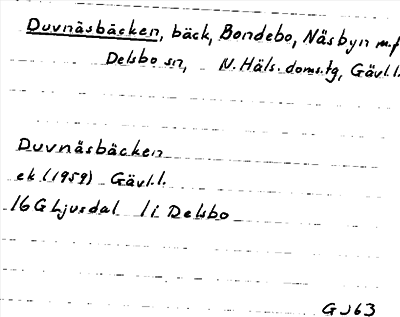 Duvnäsbäcken, bäck, Bondebo, Näsbyn m.fl
Delsbo sn, N. Häls. doms.tg, Gävl.l.
Duvnäsbäcken
ek. (1959) Gävl.l.
16G Ljusdal 1i Delsbo
GJ63